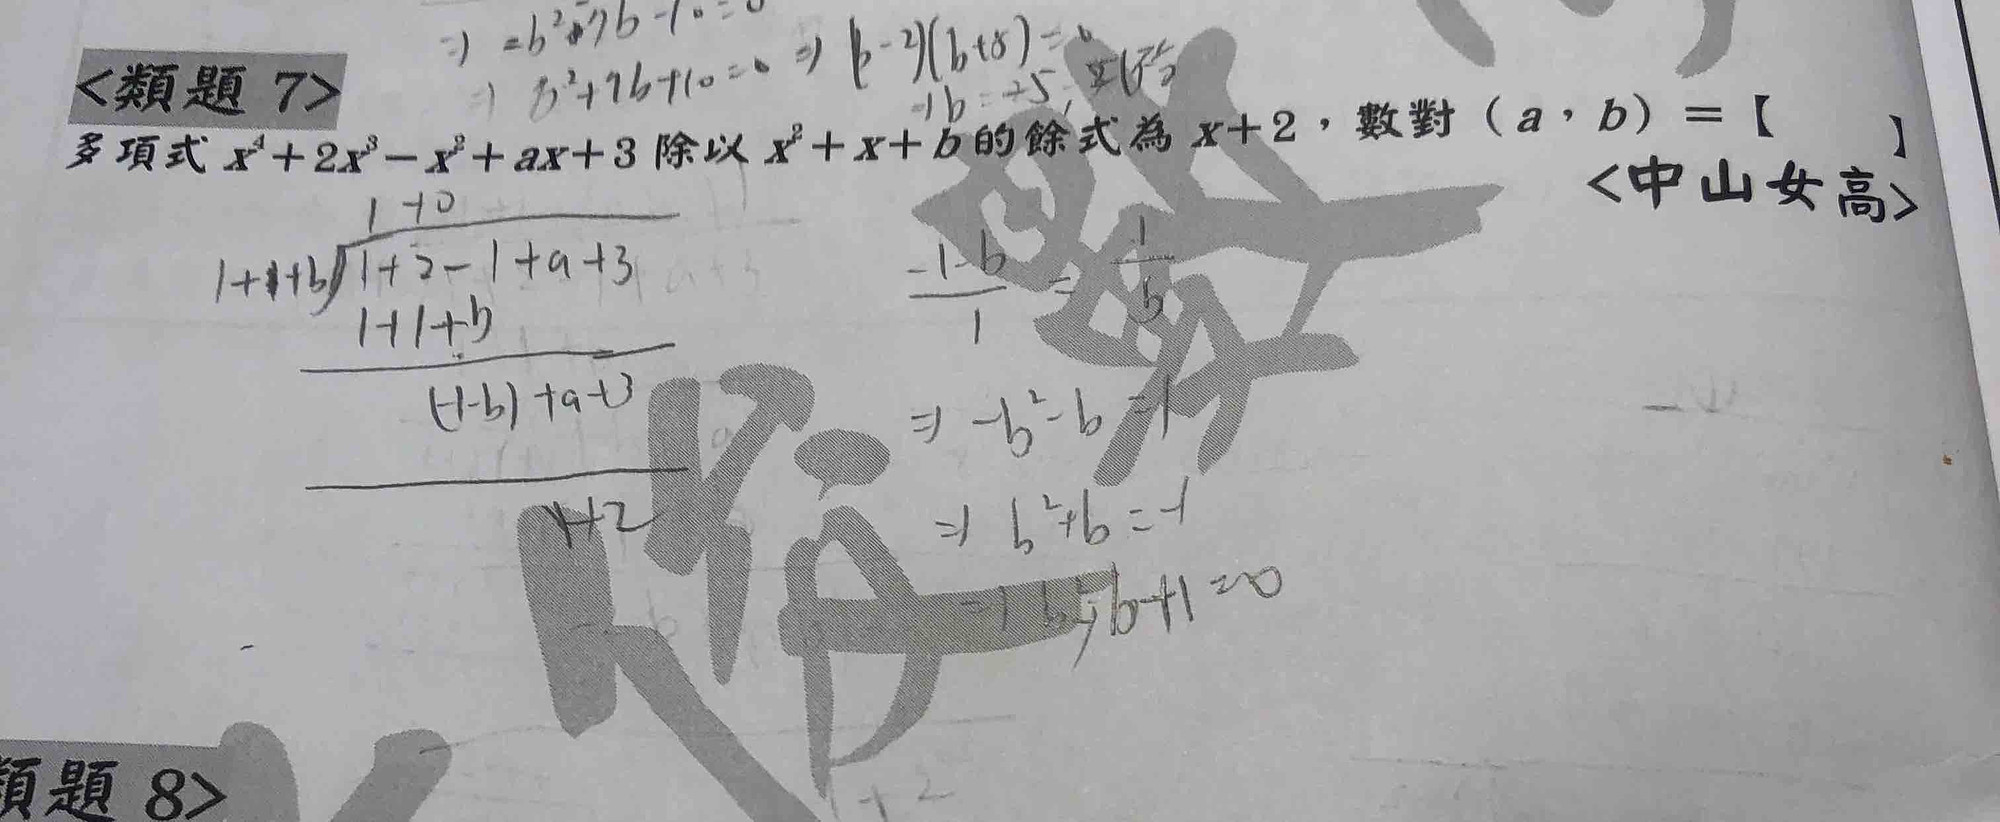 ⇒ -b²+7b-10=0
⇒ b²+7b+10=0 ⇒ (b-2)(b+8)=0
⇒b=-5,
<類題 7>
多項式 x⁴+2x³-x²+ax+3 除以 x²+x+b 的餘式為 x+2，數對（a，b）＝【 】
<中山女高>
1+0
1+1+b 1+2-1+a+3
1+1+b
(-1-b)+a+3
1+2
-1-b/1 = 1/b
⇒ -b²-b=1
⇒ b²+b=-1
⇒ b²+b+1=0
類題 8>